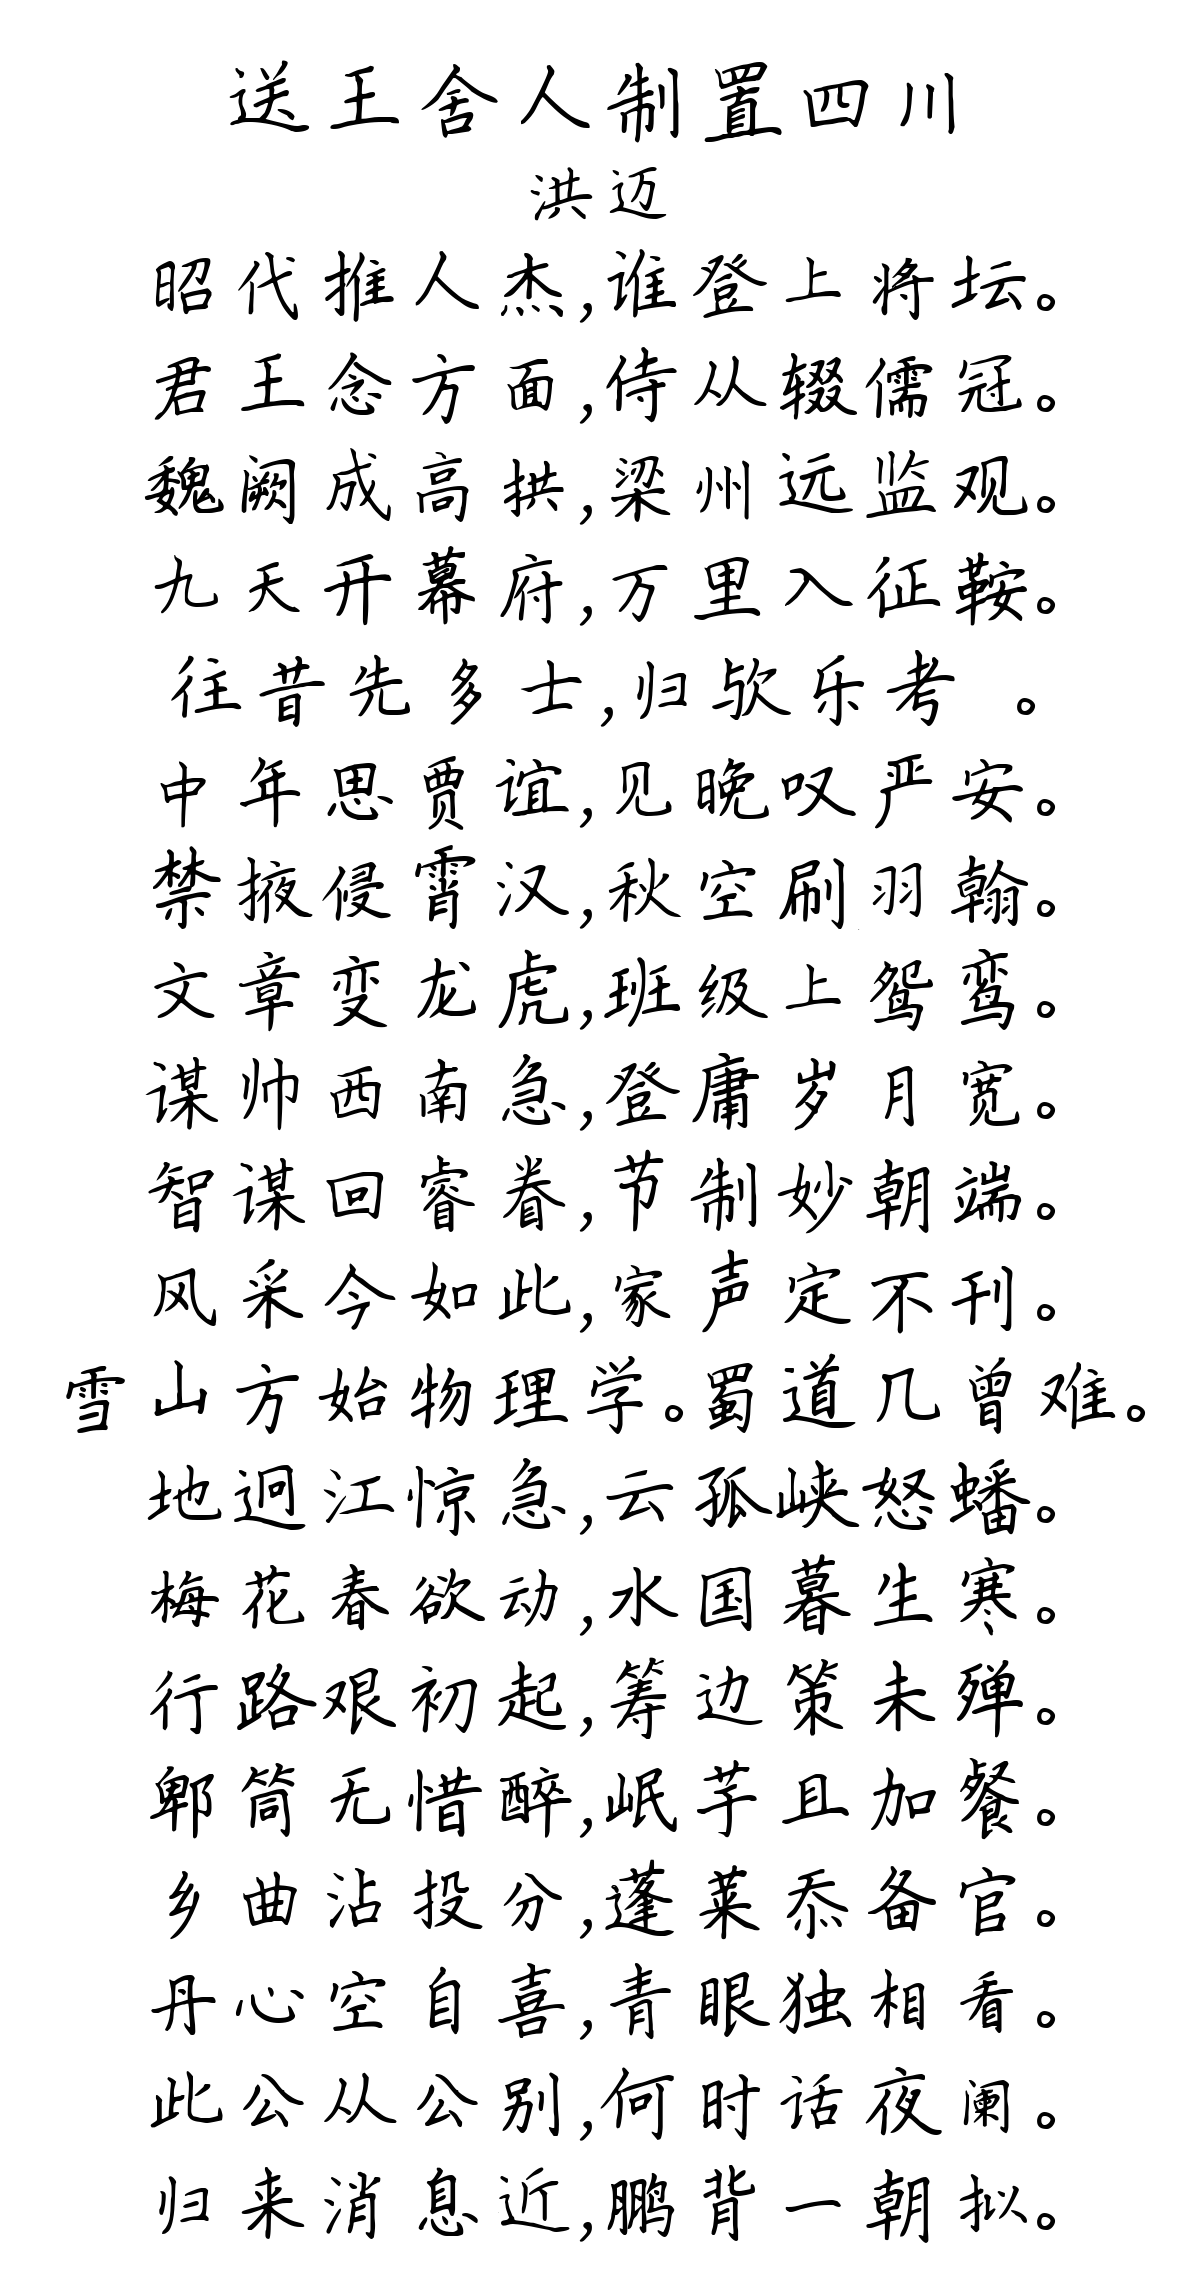 送王舍人制置四川
洪迈
昭代推人杰,谁登上将坛。
君王念方面,侍从辍儒冠。
魏阙成高拱,梁州远监观。
九天开幕府,万里入征鞍。
往昔先多士,归欤乐考 。
中年思贾谊,见晚叹严安。
禁掖侵霄汉,秋空刷羽翰。
文章变龙虎,班级上鸳鸾。
谋帅西南急,登庸岁月宽。
智谋回睿眷,节制妙朝端。
风采今如此,家声定不刊。
雪山方始物理学。蜀道几曾难。
地迥江惊急,云孤峡怒蟠。
梅花春欲动,水国暮生寒。
行路艰初起,筹边策未殚。
郫筒无惜醉,岷芋且加餐。
乡曲沾投分,蓬莱忝备官。
丹心空自喜,青眼独相看。
此公从公别,何时话夜阑。
归来消息近,鹏背一朝拟。